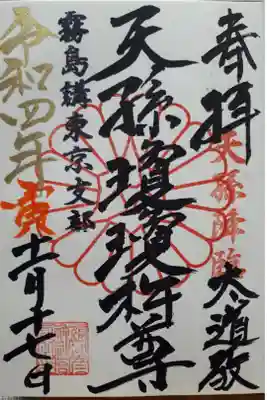 奉拝
天孫降臨
大道教
天孫瓊瓊杵尊
霧島講東京支部
令和四年
寅
十一月十七日